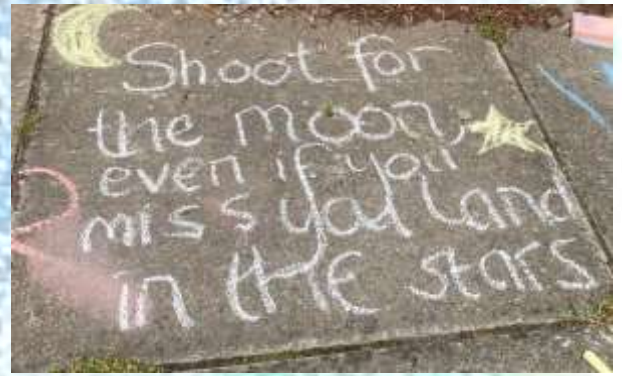 Shoot for
the moon,
even if you
miss you land
in tHE stars